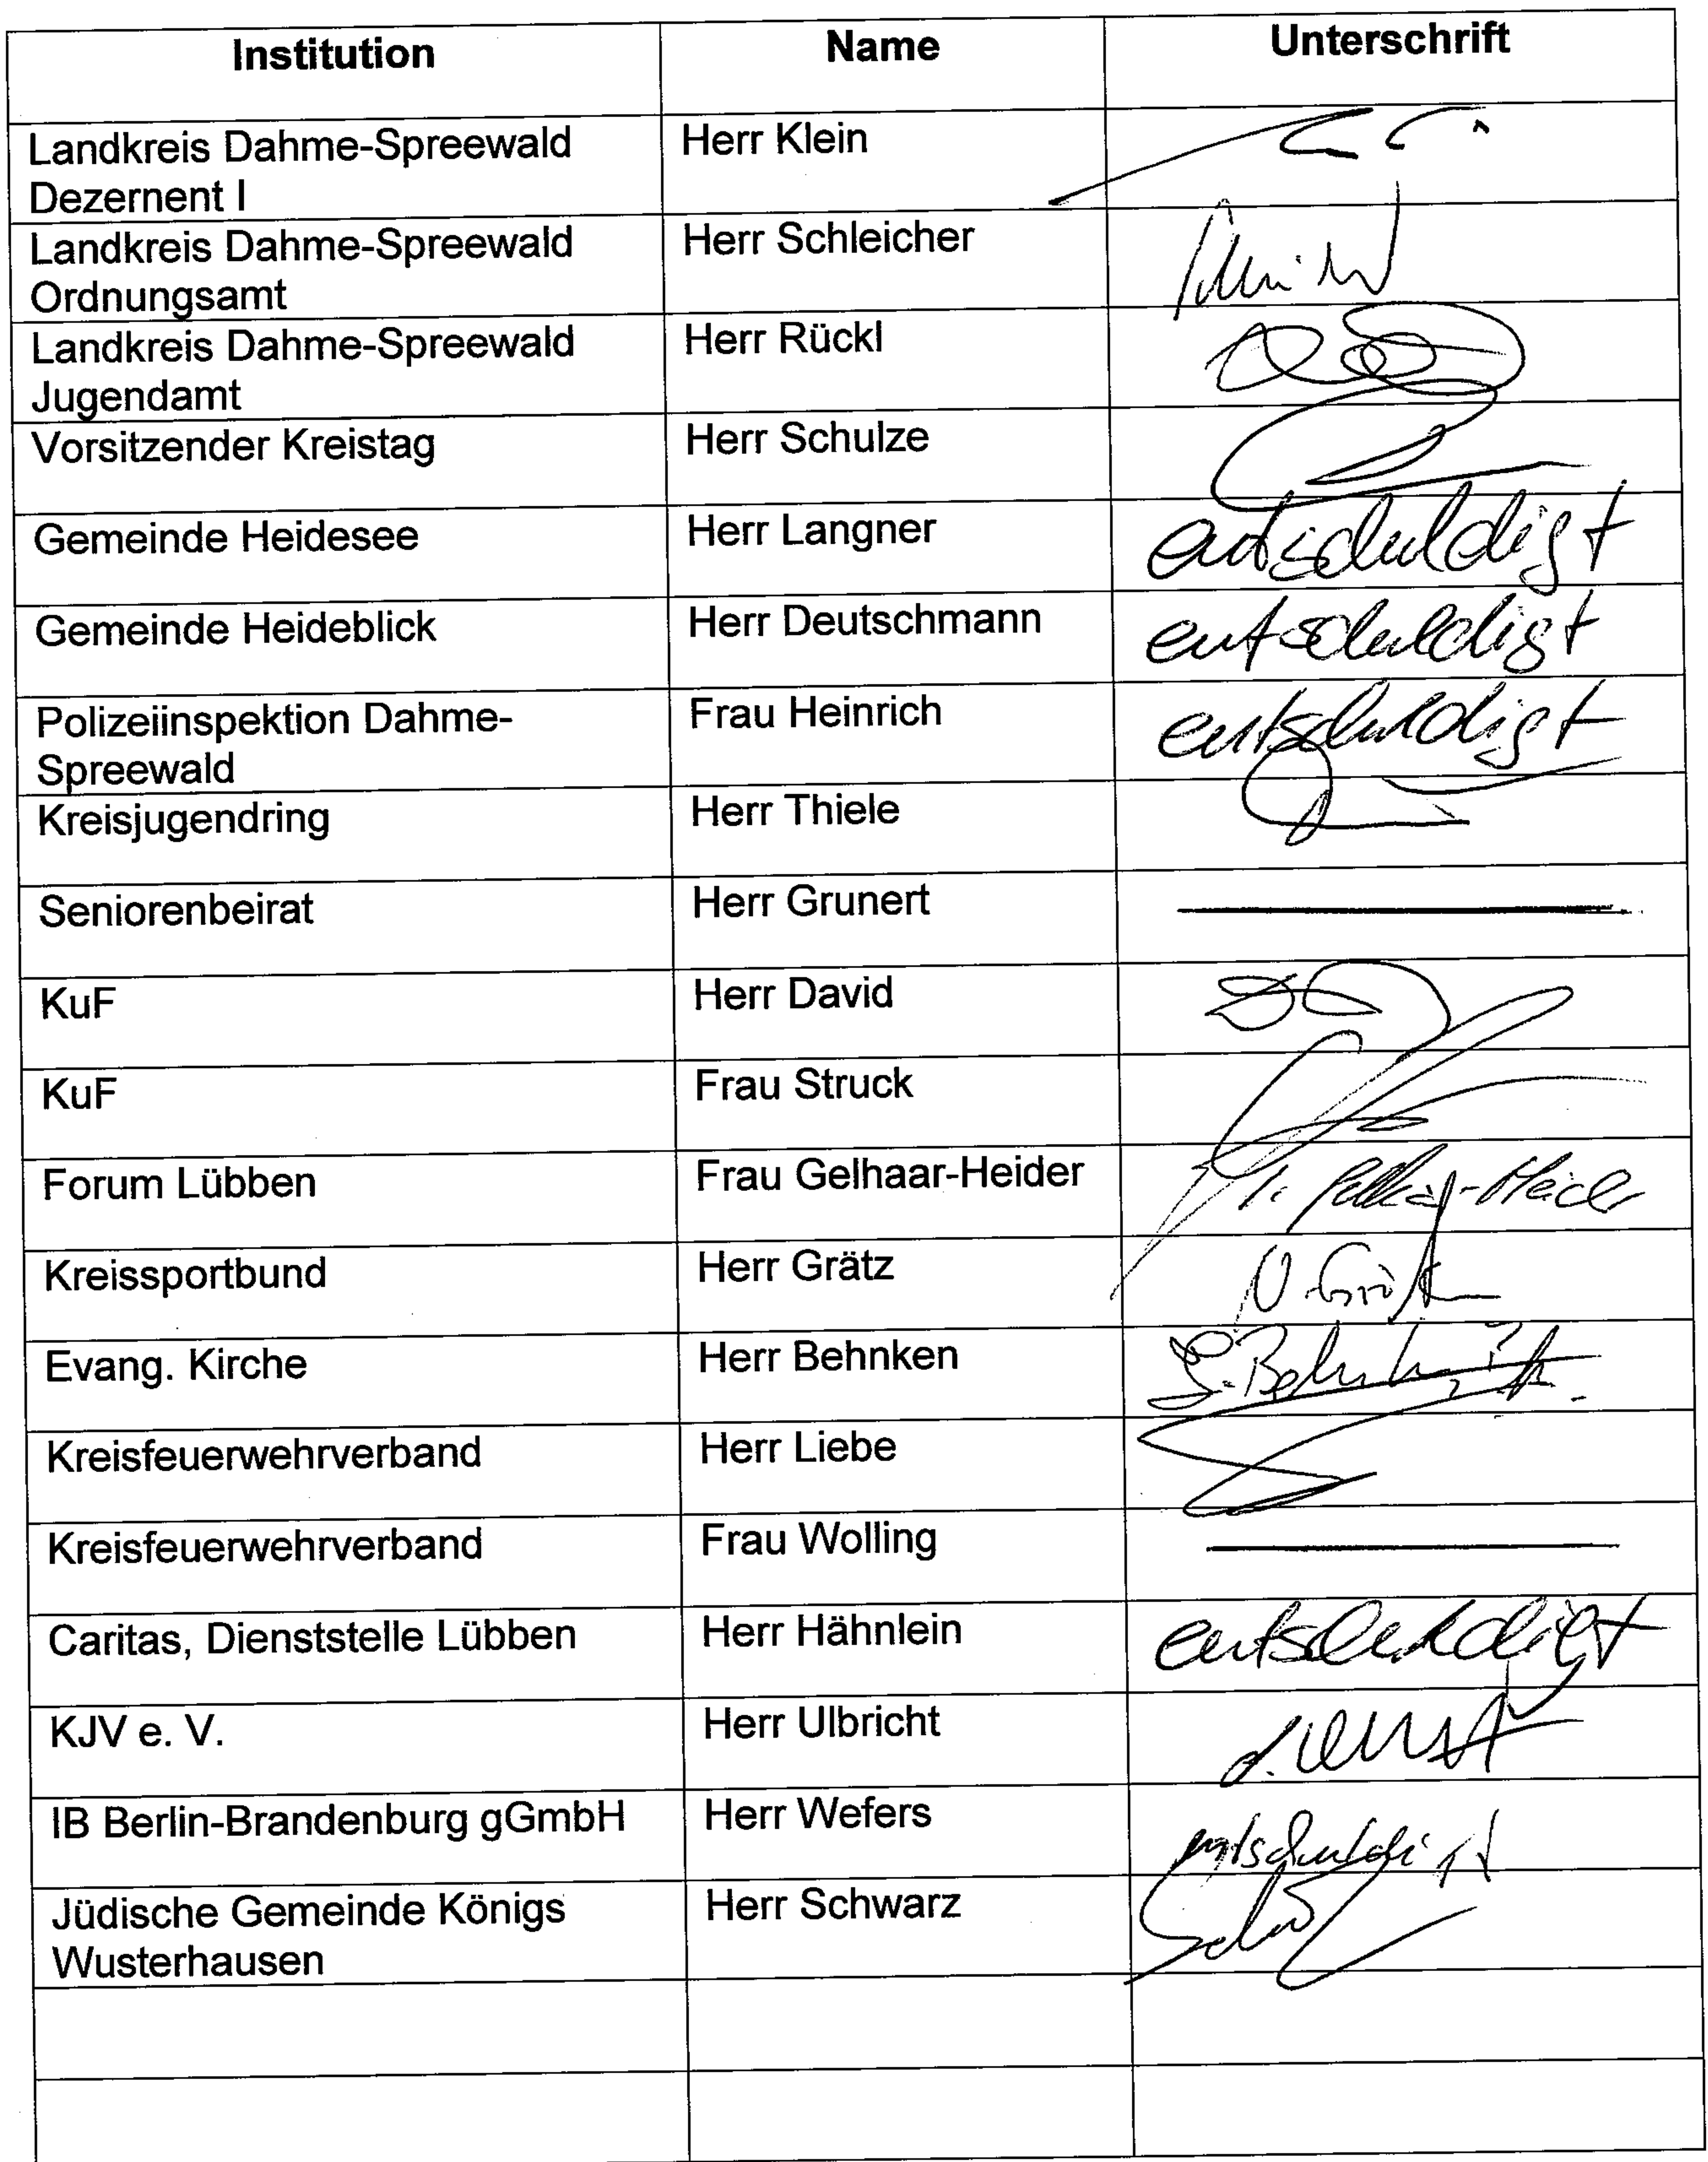 Institution Name Unterschrift
Landkreis Dahme-Spreewald Herr Klein
Dezernent I
Landkreis Dahme-Spreewald Herr Schleicher
Ordnungsamt
Landkreis Dahme-Spreewald Herr Rückl
Jugendamt
Vorsitzender Kreistag Herr Schulze
Gemeinde Heidesee Herr Langner entschuldigt
Gemeinde Heideblick Herr Deutschmann entschuldigt
Polizeiinspektion Dahme- Frau Heinrich entschuldigt
Spreewald
Kreisjugendring Herr Thiele
Seniorenbeirat Herr Grunert
KuF Herr David
KuF Frau Struck
Forum Lübben Frau Gelhaar-Heider
Kreissportbund Herr Grätz
Evang. Kirche Herr Behnken
Kreisfeuerwehrverband Herr Liebe
Kreisfeuerwehrverband Frau Wolling
Caritas, Dienststelle Lübben Herr Hähnlein entschuldigt
KJV e. V. Herr Ulbricht
IB Berlin-Brandenburg gGmbH Herr Wefers entschuldigt
Jüdische Gemeinde Königs Herr Schwarz
Wusterhausen